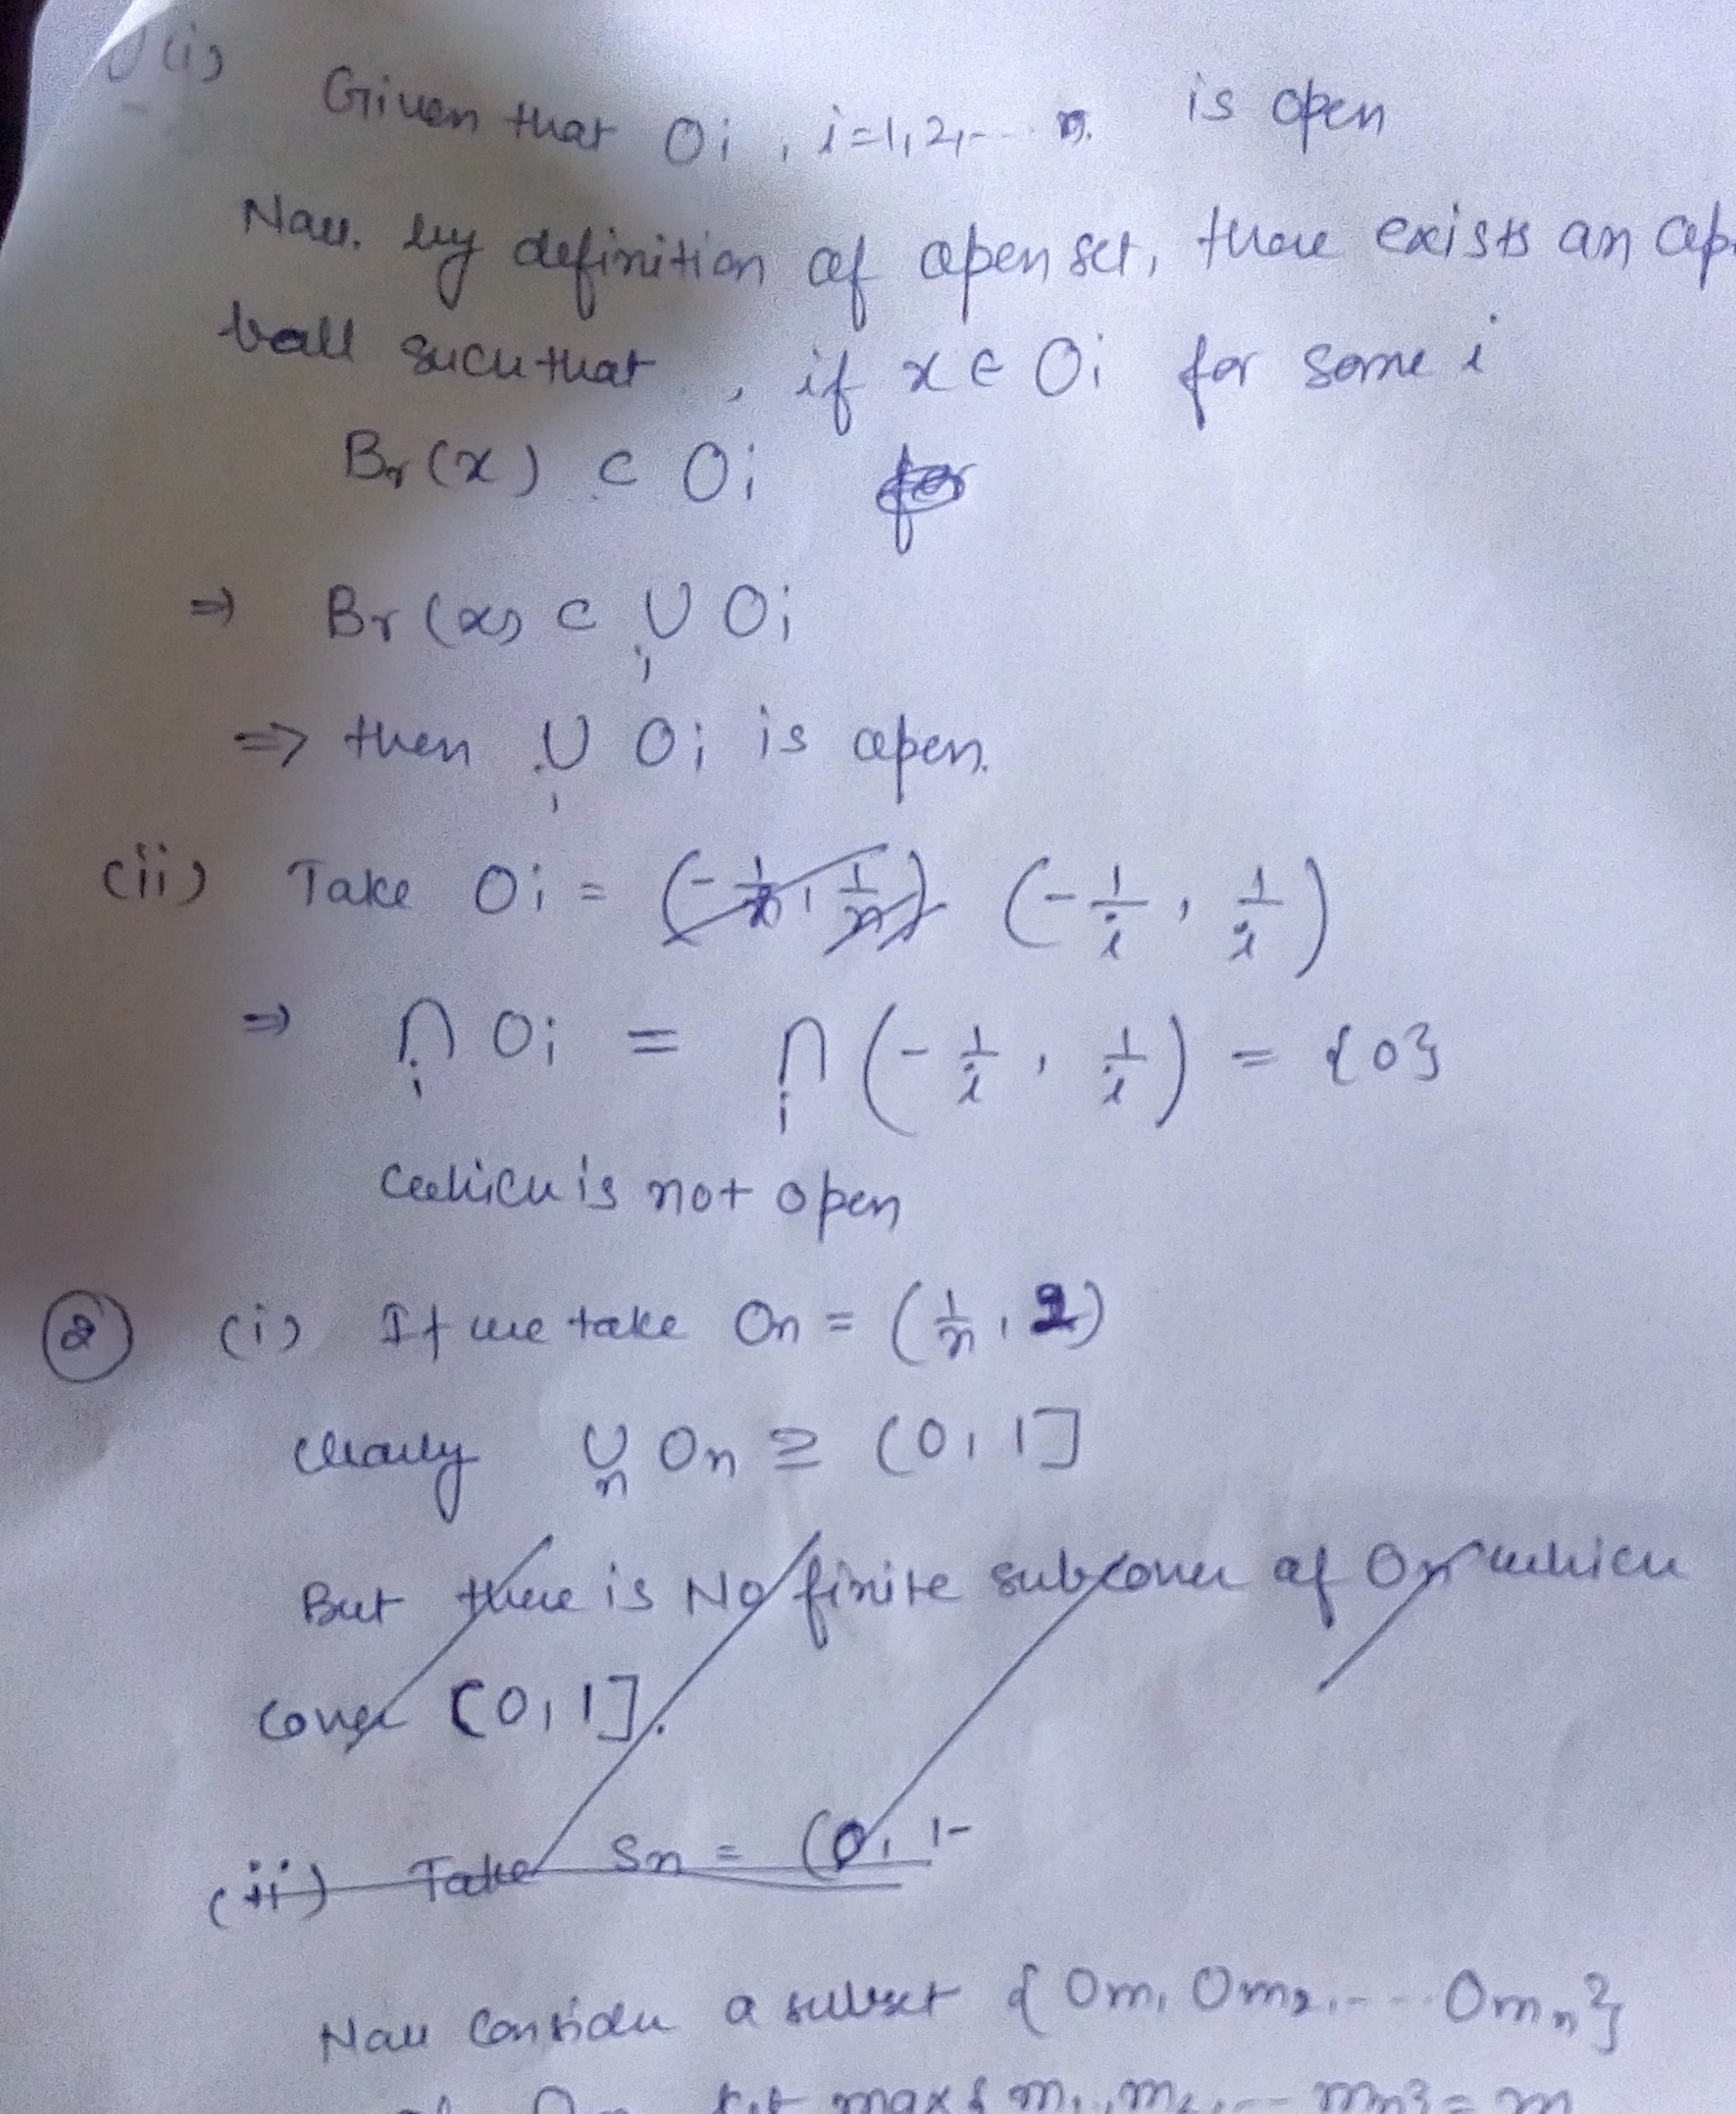 (i) Given that Oi, i=1,2,... n. is open
Now. by definition of open set, there exists an op
ball such that, if x ∈ Oi for some i
Br(x) ⊂ Oi for
⇒ Br(x) ⊂ ∪i Oi
⇒ then ∪i Oi is open.
(ii) Take Oi = (-1/n, 1/n) (-1/i, 1/i)
⇒ ∩i Oi = ∩i (-1/i, 1/i) = {0}
which is not open
② (i) If we take On = (1/n, 2)
clearly ∪n On ⊇ (0, 1]
But there is No finite subcover of On which
cover (0, 1].
(ii) Take Sn = (0, 1-
Now consider a subset {Om1 Om2, ... Omn}
of On let max{m1, m2, ... mn} = m